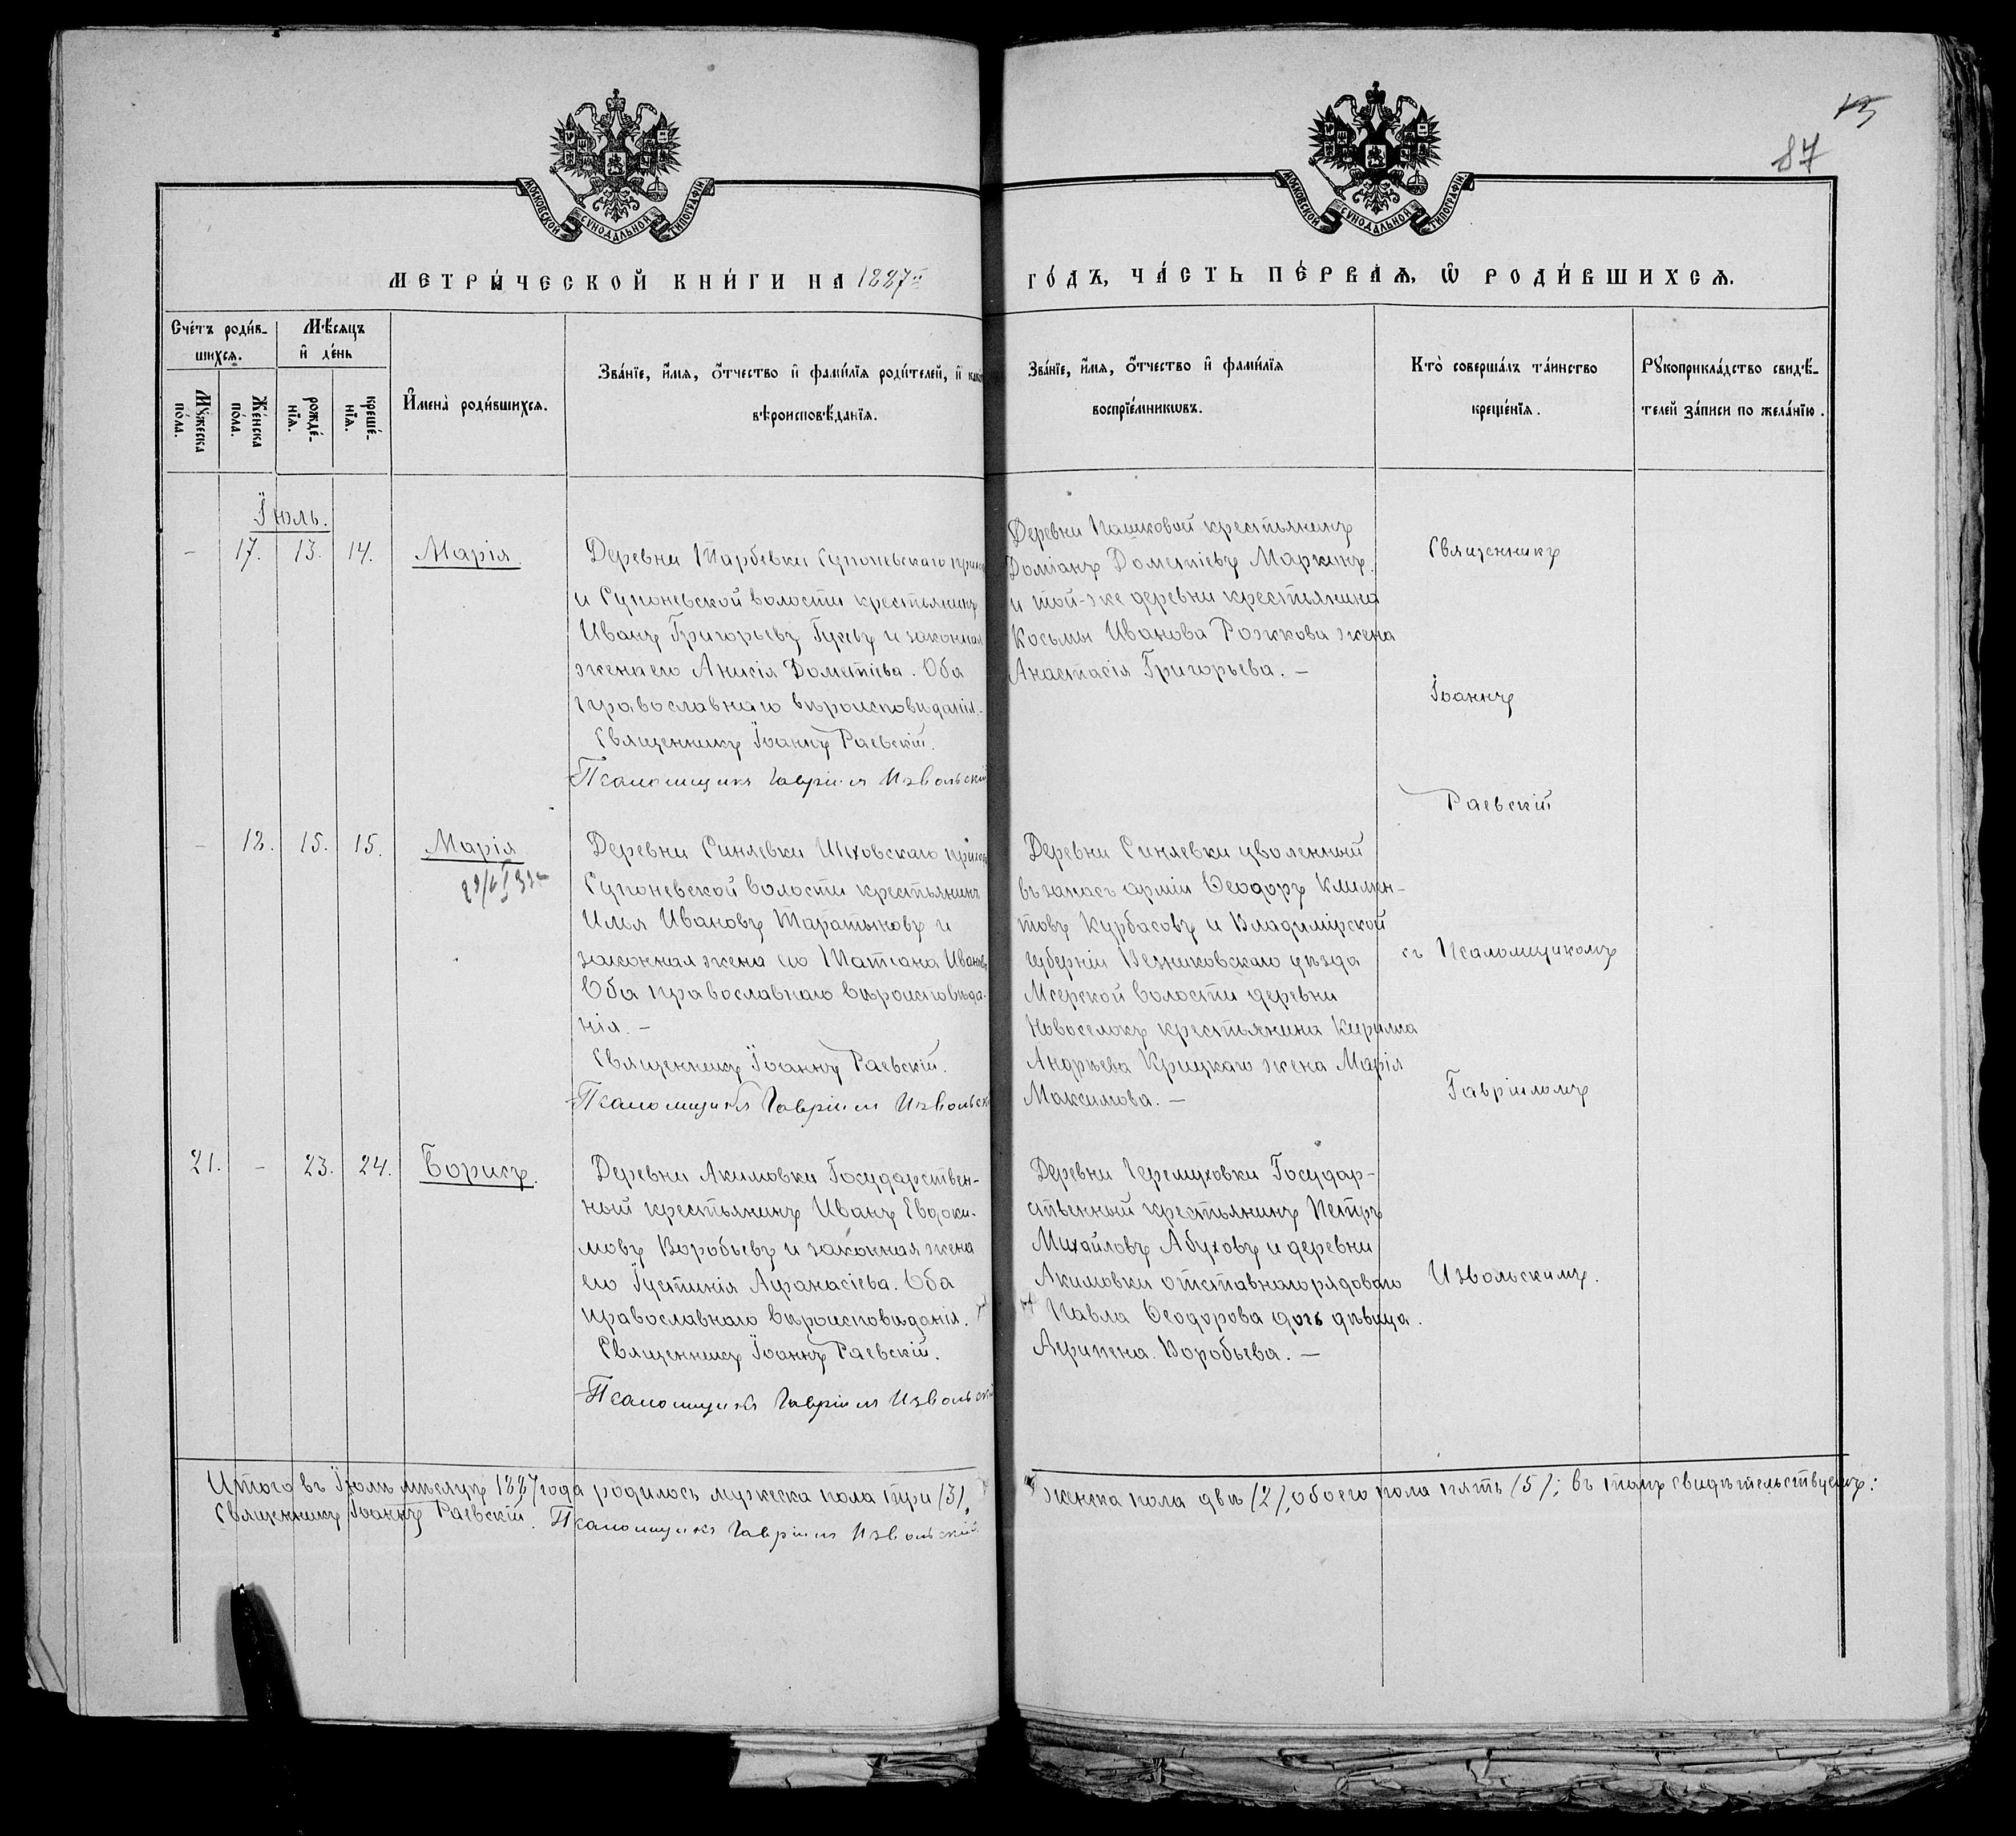 13
87
МОСКОВСКОЙ СѴНОДАЛЬНОЙ ТИПОГРАФІИ.
МОСКОВСКОЙ СѴНОДАЛЬНОЙ ТИПОГРАФІИ.
МЕТРИ́ЧЕСКОЙ КНИ́ГИ НА 1887й
ГО́ДЪ, ЧА́СТЬ ПЕ́РВАѦ, Ѡ҆ РОДИ́ВШИХСѦ.
Сче́тъ роди́в-
шихсѧ.
Мѣ́сѧцъ
и҆ де́нь
Мꙋ́жеска по́ла.
Же́нска по́ла.
рожде́-нїѧ.
креще́-нїѧ.
И҆мена̀ роди́вшихсѧ.
Зва́нїе, и҆́мѧ, ѻ҆́тчество и҆ фами́лїѧ роди́телей, и҆
вѣроисповѣ́данїѧ.
Зва́нїе, и҆́мѧ, ѻ҆́тчество и҆ фами́лїѧ
воспрїе́мникѡвъ.
Кто̀ соверша́лъ та́инство
креще́нїѧ.
Рꙋкоприкла́дство свидѣ́-
телей за́писи по жела́нїю.
Іюль.
– 17. 13. 14. Марія.
Деревни Тарбевки Супоневскаго прихо
и Супоневской волости крестьянинъ
Иванъ Григорьевъ Гусевъ и законная
жена его Анисія Дометіева. Оба
православнаго вѣроисповѣданія.–
Священникъ Іоаннъ Раевскій.
Псаломщикъ Гавріилъ Извольскій
Деревни Пашковой крестьянинъ
Доміанъ Дометіевъ Маркинъ.
и той-же деревни крестьянина
Косьмы Иванова Рожкова жена
Анастасія Григорьева. –
Священникъ
Іоаннъ
Раевскій
– 18. 15. 15. Марія
Деревни Синяевки Шиховскаго прихо
Супоневской волости крестьянинъ
Илья Ивановъ Таратыновъ и
законная жена его Татіана Иванова
Оба православнаго вѣроисповѣда-
нія. –
Священникъ Іоаннъ Раевскій.
Псаломщикъ Гавріилъ Извольск
Деревни Синяевки уволенный
въ запасъ арміи Ѳеодоръ Климен-
товъ Курбасовъ и Владимірской
губерніи Вязниковскаго уѣзда
Мсерской волости деревни
Новоселокъ крестьянина Кирилла
Андреева Крицкаго жена Марія
Максимова. –
съ Псаломщикомъ
Гавріиломъ
21. – 23. 24. Борисъ.
Деревни Акимовки Государствен-
ный крестьянинъ Иванъ Евдоки-
мовъ Воробьевъ и законная жена
его Іустинія Аѳанасіева. Оба
православнаго вѣроисповѣданія.
Священникъ Іоаннъ Раевскій.
Псаломщикъ Гавріилъ Извольскій
Деревни Черемуховки Государ-
ственный крестьянинъ Петръ
Михайловъ Абуховъ и деревни
Акимовки отставнаго рядоваго
Павла Ѳеодорова дочь дѣвица.
Агрипена Воробьева. –
Извольскимъ.
Итого въ Іюлѣ мѣсяцѣ 1887 года родилось мужеска пола три /3/,
женска пола двѣ /2/, обоего пола пять /5/; въ томъ свидѣтельствуемъ:
Священникъ Іоаннъ Раевскій. Псаломщикъ Гавріилъ Извольскій.